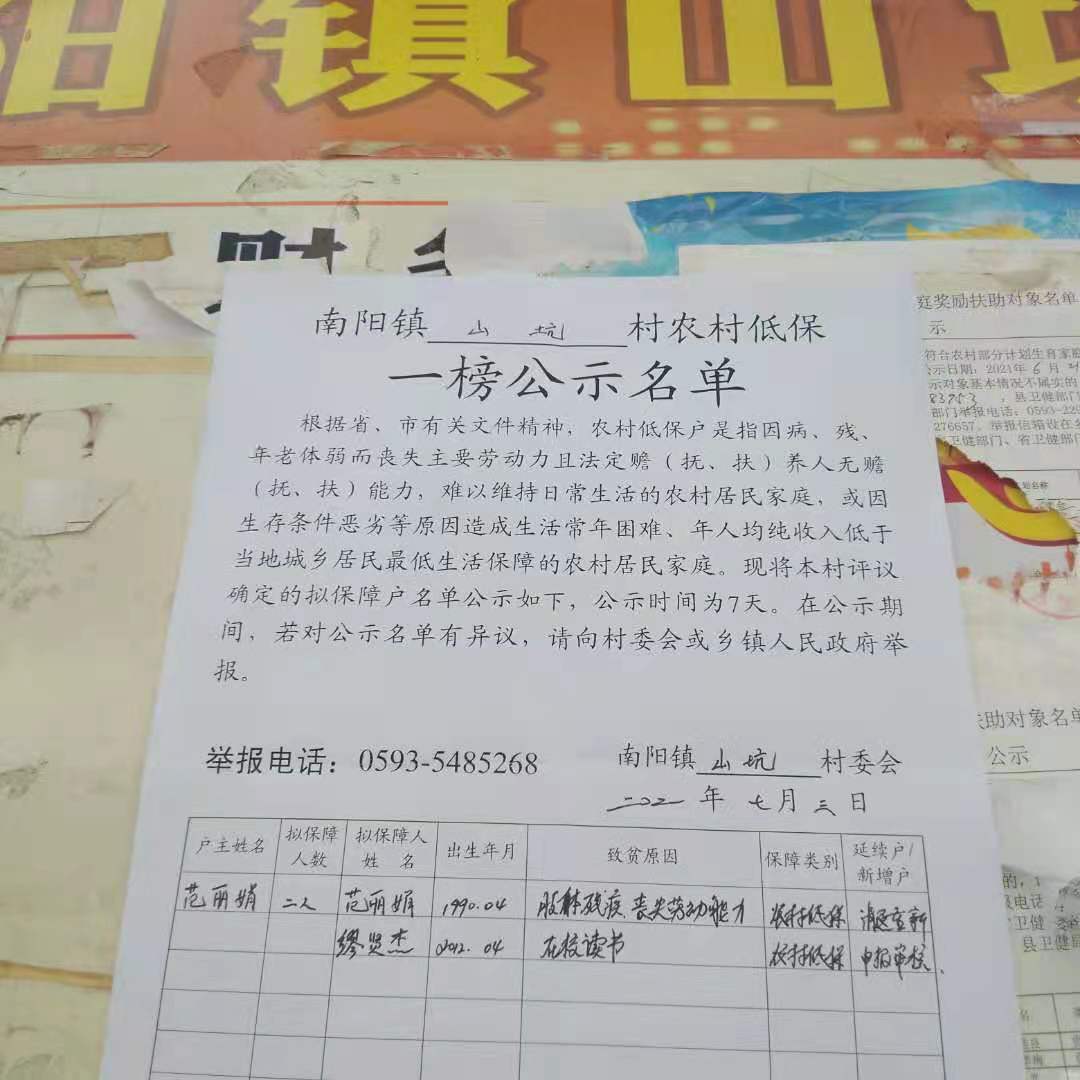 阳镇山坑
南阳镇 山坑 村农村低保
一榜公示名单
根据省、市有关文件精神，农村低保户是指因病、残、
年老体弱而丧失主要劳动力且法定赡（抚、扶）养人无赡
（抚、扶）能力，难以维持日常生活的农村居民家庭，或因
生存条件恶劣等原因造成生活常年困难、年人均纯收入低于
当地城乡居民最低生活保障的农村居民家庭。现将本村评议
确定的拟保障户名单公示如下，公示时间为7天。在公示期
间，若对公示名单有异议，请向村委会或乡镇人民政府举
报。
举报电话：0593-5485268
南阳镇 山坑 村委会
二〇二一年七月三日
户主姓名 拟保障人数 拟保障人姓名 出生年月 致贫原因 保障类别 延续户/新增户
范丽娟 二人 范丽娟 1990.04 肢体残疾.丧失劳动能力 农村低保 清退重新
缪贤杰 2012.04 在校读书 农村低保 申报审核.
庭奖励扶助对象名单
示
符合农村部分计划生育家庭
公示日期：2021年6月
示对象基本情况不属实的
83953，县卫健部门
部门举报电话：0593-225
276657。举报信箱设在各
卫健部门、省卫健部门
扶助对象名单
公示